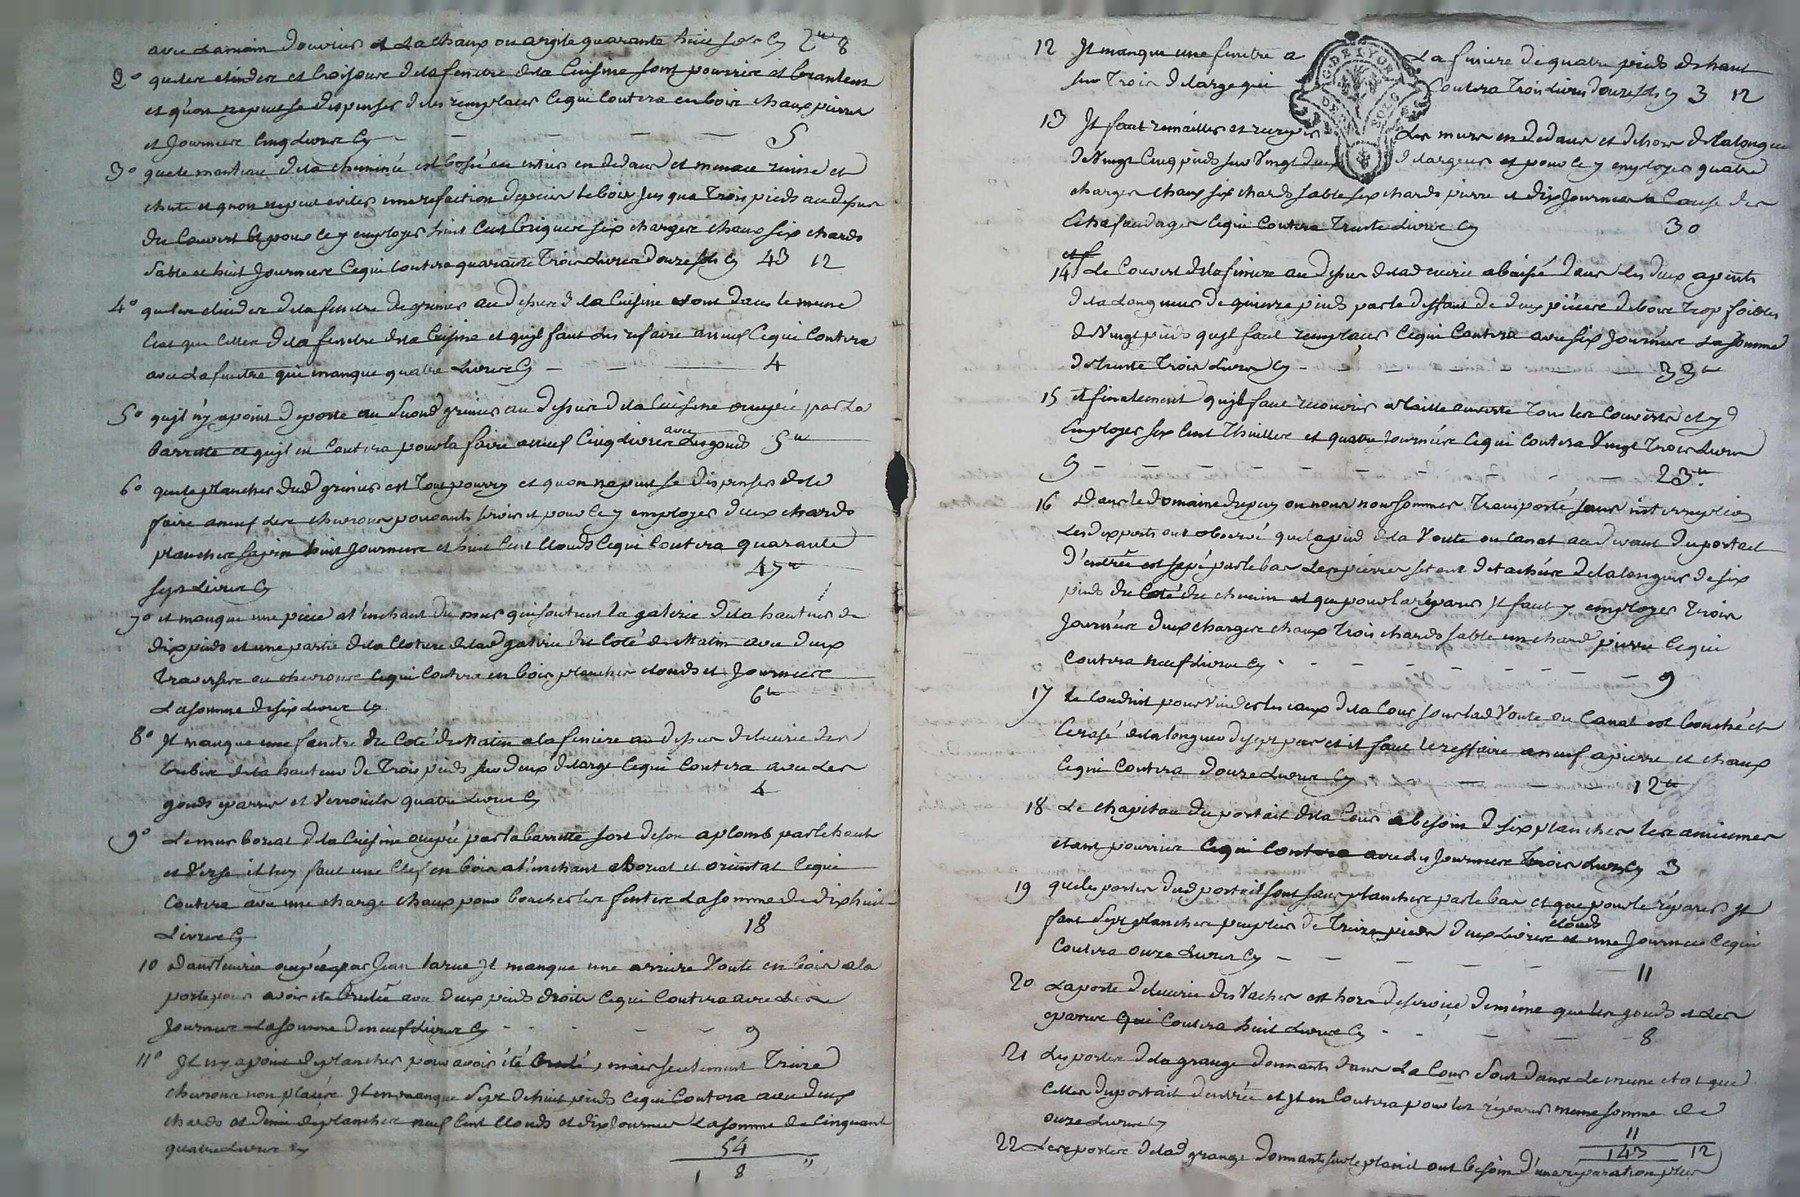 avec la main d'ouvrier et la chaux ou argile quarante huit sols Cy 2ᵗᵗ 8
2° que les et croisure de la fenêtre de la Cuisine sont pourris et branlent
et qu'on ne peut se dispenser de les remplacer Ce qui Coutera en bois chaux pierre
et Journées Cinq Livres Cy — — — — 5
3° que le manteau de la cheminée est en entier en dedans et menace ruine et
chute et qu'on ne peut eviter une refaction depuis le bois Jusqua Trois pieds au dessus
du Couvert et pour ce y employer huit Cent briques six charges chaux six chards
sable et huit Journées Ce qui Coutera quarante Trois Livres douze sols Cy 43 12
4° que les de la fenêtre du grenier au dessus de la Cuisine sont dans le meme
Etat que Celles de la fenêtre de la Cuisine et qu'il faut les refaire a neuf Ce qui Coutera
avec la fenêtre qui manque quatre Livres Cy — — — 4
5° qu'il n'y a point de porte au Second grenier au dessus de la Cuisine occupée par la
barrette et qu'il en Coutera pour la faire a neuf Cinq Livres avec les gonds 5ᵗᵗ
6° que le plancher dud grenier est Tout pourry et qu'on ne peut se dispenser de le
faire a neuf Les chevrons pouvants servir et pour ce y employer deux chards
planches sapin huit Journées et huit Cent Clouds Ce qui Coutera quarante
sept Livres Cy 47ᵗᵗ
7° il manque une piece a l'enchant du mur qui soutient la galerie de la hauteur de
dix pieds et une partie de la Cloture de lad galerie du Coté de Matin avec deux
Traverses ou chevrons Ce qui Coutera en bois planches clouds et Journées
La somme de six Livres Cy 6ᵗᵗ
8° Il manque une fenêtre du Coté de Matin a la feniere au dessus de l'ecurie des
brebis de la hauteur de Trois pieds sur deux de large Ce qui Coutera avec les
gonds eparres et Verrouils quatre Livres Cy 4
9° Le mur boreal de la Cuisine occupée par la barrette sort de son aplomb par le haut
et Verse il luy faut une Clef en bois a l'enchant Boreal et oriental Ce qui
Coutera avec une charge chaux pour boucher les fentes La somme de dix huit
Livres Cy 18
10 dans l'ecurie occupée par Jean Larue Il manque une arriere Voute en bois a la
porte pour avoir été Brulée avec deux pieds droits Ce qui Coutera avec les
Journées La somme de neuf Livres Cy - - - - 9
11° Il n'y a point de plancher pour avoir été brulé, mais seulement Treize
chevrons non placés Il en manque Sept de huit pieds Ce qui Coutera avec deux
chards et demi de planches neuf Cent Clouds et dix Journées La somme de Cinquante
quatre Livres Cy 54
1 8 "
12 Il manque une fenêtre a La feniere de quatre pieds de haut
sur Trois de large qui Coutera Trois Livres douze sols Cy 3 12
13 Il faut remailler et Les murs en dedans et dehors de la longueur
de Vingt Cinq pieds sur Vingt deux de largeur et pour ce y employer quatre
charges chaux six chards sable six chards pierre et dix Journées a Cause des
Echafaudages Ce qui Coutera Trente Livres Cy 30
14 Le Couvert de la feniere au dessus de lad ecurie a baissé dans les deux
de la longueur de quinze pieds par le deffaut de deux pieces de bois Trop foibles
de Vingt pieds qu'il faut remplacer Ce qui Coutera avec six Journées La somme
de trente Trois Livres Cy - - - - 33ᵗᵗ
15 et finalement qu'il faut recouvrir a taille ouverte Tous les Couverts et y
Employer six Cent Thuilles et quatre Journées Ce qui Coutera Vingt Trois Livres
Cy - - - - - - - - - - 23ᵗᵗ
16 dans le domaine ou nous nous sommes Transporté sans interruption
Les experts ont observé que le pied de la Voute ou Canal au devant du portail
d'entrée est par le bas Les pierres setant detachées de la longueur de six
pieds du Coté du chemin et que pour la réparer Il faut y employer Trois
Journées deux charges chaux Trois chards sable un chard pierre Ce qui
Coutera neuf Livres Cy - - - - - - 9
17 Le Conduit pour Vuider les eaux de la Cour sous lad Voute ou Canal est bouché et
Ecrasé de la longueur de sept pas et il faut le reffaire a neuf a pierre et chaux
Ce qui Coutera douze Livres Cy - - - 12ᵗᵗ
18 Le chapitau du portail de la Cour a besoin de six planches les anciennes
etant pourries Ce qui Coutera avec les Journées Trois Livres Cy 3
19 que les portes dud portail sont sans planches par le bas et que pour le réparer Il
faut Sept planches peuplier de Treize pieds deux Livres clouds et une Journée Ce qui
Coutera onze Livres Cy - - - - - 11
20 La porte de l'ecurie des Vaches est hors de service de même que les gonds et Les
eparres Qui Coutera huit Livres Cy - - - - 8
21 Les portes de la grange donnants dans La Cour sont dans Le meme etat que
Celles du portail d'entrée et Il en Coutera pour les réparer meme somme de
onze Livres Cy 11
143 12
22 Les portes de lad grange donnants sur le ont besoin d'une reparation